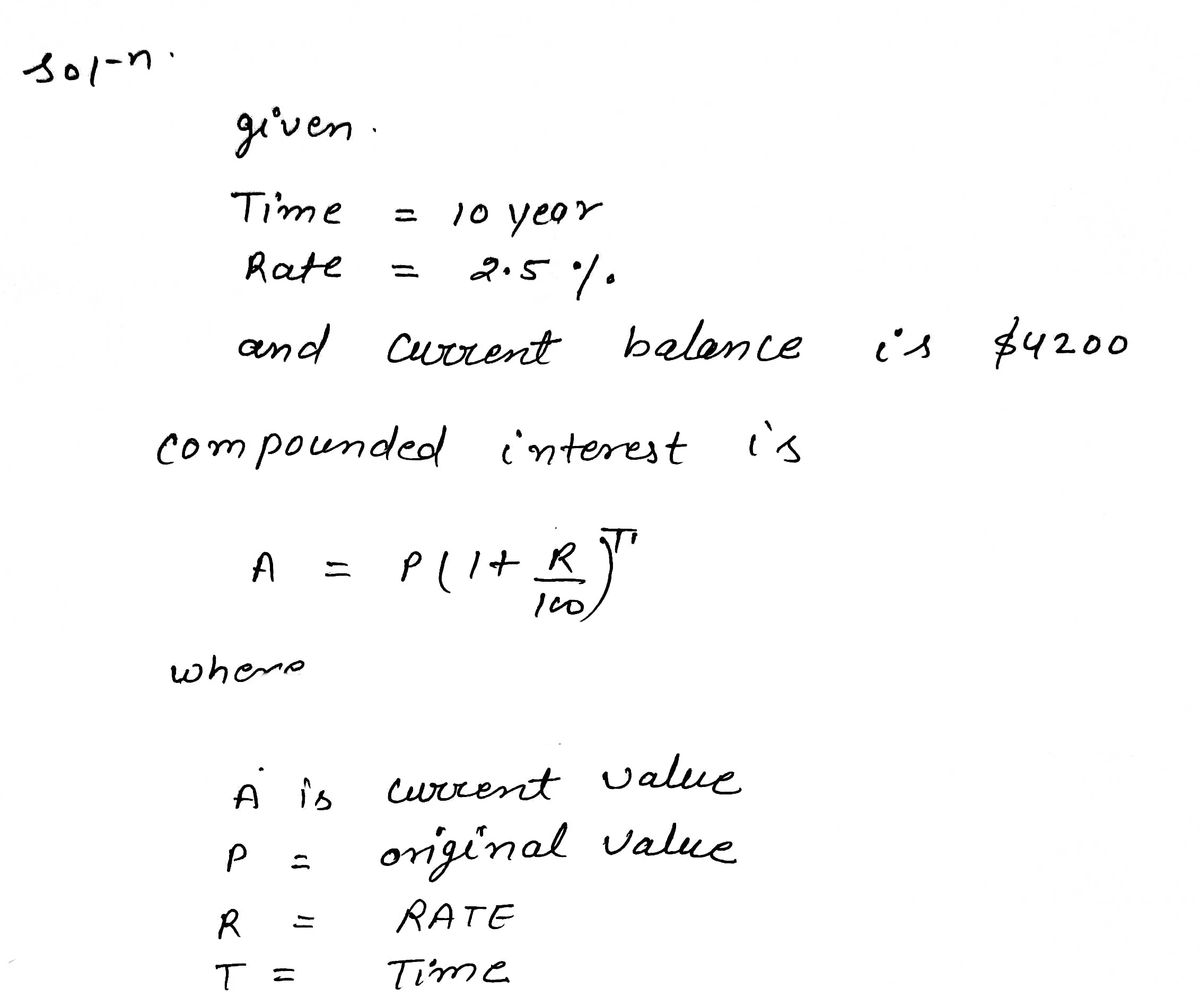 sol-n.
given.
Time = 10 year
Rate = 2.5 %.
and current balance is $4200
compounded interest is
A = P(1+ R/100)^T
where
A is current value
P = original value
R = RATE
T = Time